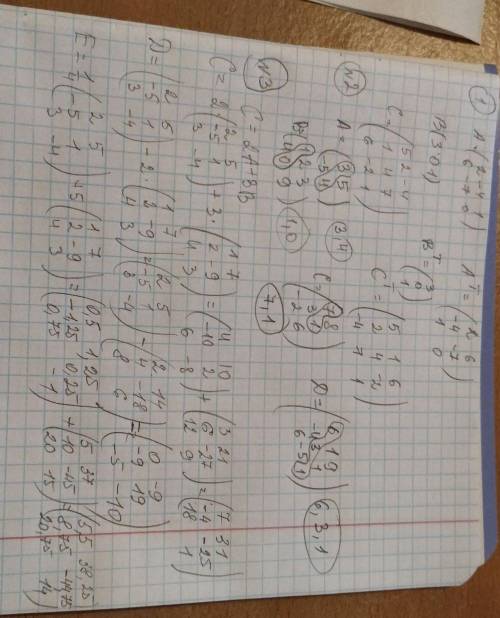 1
A = (2 -4 1
6 -7 0)
Aᵀ = (2 6
-4 -7
1 0)
B(3 0 1)
Bᵀ = (3
0
1)
C = (5 2 -4
1 4 7
6 -2 1)
Cᵀ = (5 1 6
2 4 -2
-4 7 1)
N2
A = (3 5
-5 4)
3,4
C = (7 8
3 1
2 6)
7,1
1,0
6,3,1
N3
C = 2A+3B
C = 2(2 5
-5 1
3 -4) + 3·(1 7
2 -9
4 3) = (4 10
-10 2
6 -8) + (3 21
6 27
12 9) = (7 31
-4 -25
18 1)
D = (2 5
-5 1
3 -4) - 2·(1 7
2 -9
4 3) = (2 5
-5 1
3 -4) - (2 14
4 -18
8 6) = (0 -9
-9 19
-5 -10)
E = 1/4 (2 5
-5 1
3 -4) + 5(1 7
2 -9
4 3) = (0,5 1,25
-1,25 0,25
0,75 -1) + (5 37
10 -45
20 15) = (5,5 38,25
8,75 -44,75
20,75 14)